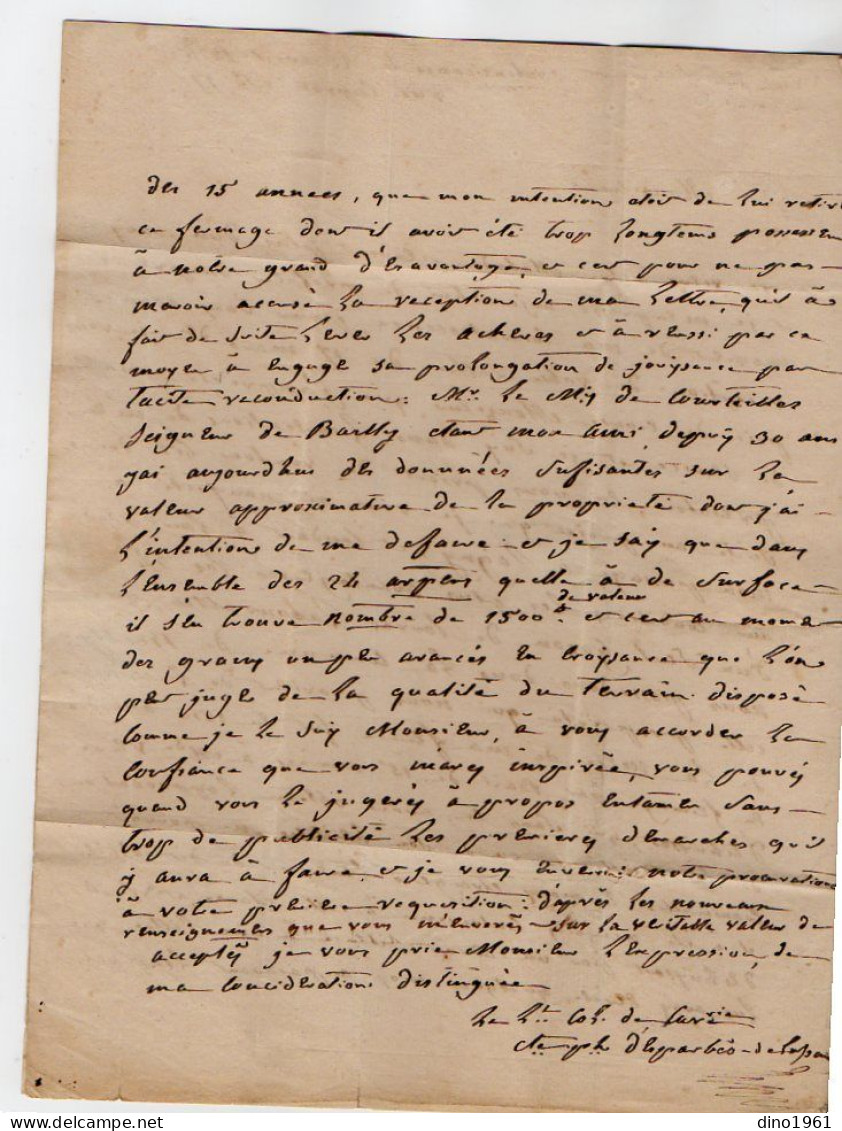 des 15 années, que mon intention etoit de lui retir
ce fermage dont il avoit été trop longtems possesseu
à notre grand d'ésavantage, et c'est pour ne pas
mavoir accusé la reception de ma lettre, qu'il à
fait de suite lever les et à reussi par ce
moyen à engagé sa prolongation de jouissance par
tacite reconduction: Mr. le Mis de Courteilles
seigneur de Bailly etant mon ami depuis 30 ans
j'ai aujourdhui des données sufisantes sur la
valeur approximative de la proprieté dont j'ai
l'intention de me defaire: et je sais que dans
l'ensemble des 24 arpens quelle à de surface
de valeur
il s'en trouve nombre de 1500# et c'est au momen
des grains un peu avancés en croissance que l'on
peut jugé de la qualité du terrain. disposé
comme je le suis Monsieur, à vous accorder la
confiance que vous m'avez inspirée, vous pouvés
quand vous le jugerés à propos entamer sans
trop de publicité les premieres demarches qu'il
y aura à faire, et je vous enverrai notre procuration
à votre premiere requisition: d'après les nouveaux
renseignemens que vous m'enverés sur la veritable valeur de
acceptés je vous prie Monsieur l'expression de
ma concideration distinguée
le Lt. Col. de Cavrie
Cte ph. d'Esparbès-de Lussan
dino1961